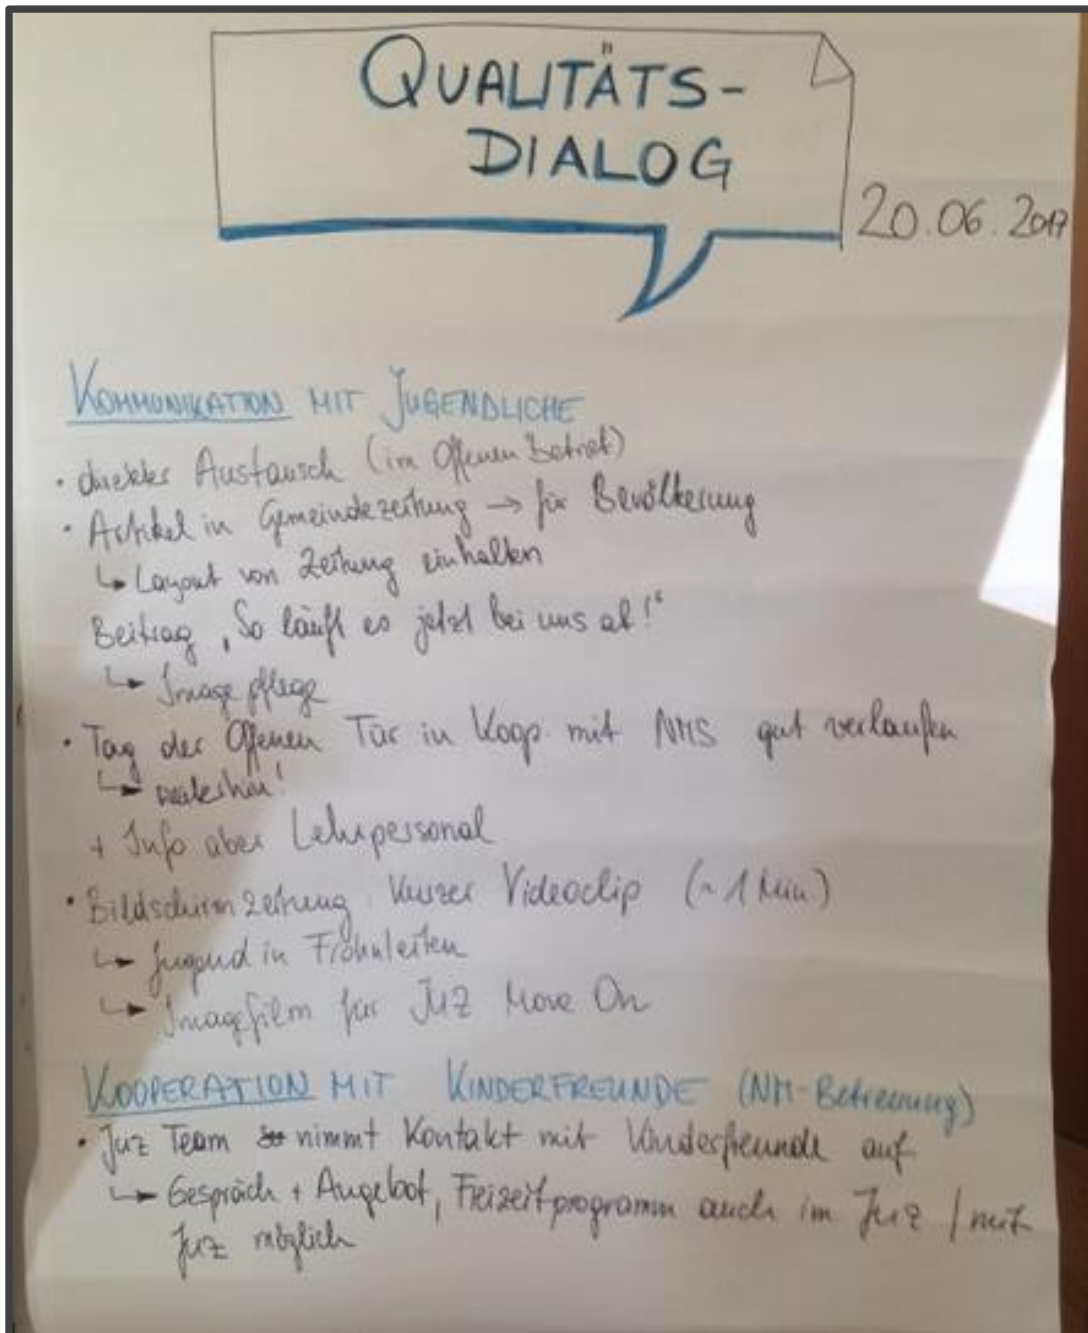 QUALITÄTS-
DIALOG
20.06.2017
KOMMUNIKATION MIT JUGENDLICHE
• direkter Austausch (im Offenen Betrieb)
• Artikel in Gemeindezeitung → für Bevölkerung
↳ Layout von Zeitung einhalten
Beitrag „So läuft es jetzt bei uns ab!“
↳ Imagepflege
• Tag der Offenen Tür in Koop. mit NMS gut verlaufen
↳ weiterhin!
+ Info über Lehrpersonal
• Bildschirmzeitung: Kurzer Videoclip (~ 1 Min)
↳ Jugend in Frohnleiten
↳ Imagefilm für JUZ Move On
KOOPERATION MIT KINDERFREUNDE (NM-Betreuung)
• Juz Team nimmt Kontakt mit Kinderfreunde auf
↳ Gespräch + Angebot, Freizeitprogramm auch im Juz / mit
Juz möglich